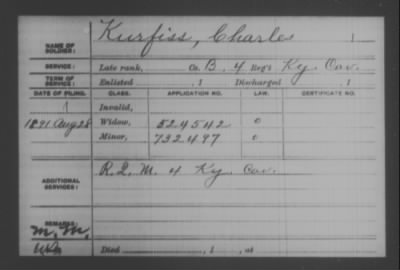 NAME OF SOLDIER: Kurfiss, Charles
SERVICE: Late rank, Co. B, 4 Reg't Ky. Cav.
TERM OF SERVICE: Enlisted , 1 Discharged , 1
DATE OF FILING. CLASS. APPLICATION NO. LAW. CERTIFICATE NO.
1 Invalid,
1891 Aug 28 Widow, 524542 o
Minor, 732497 o
ADDITIONAL SERVICES: R.Q.M. 4 Ky Cav.
REMARKS:
M. M.
Died , 1 , at